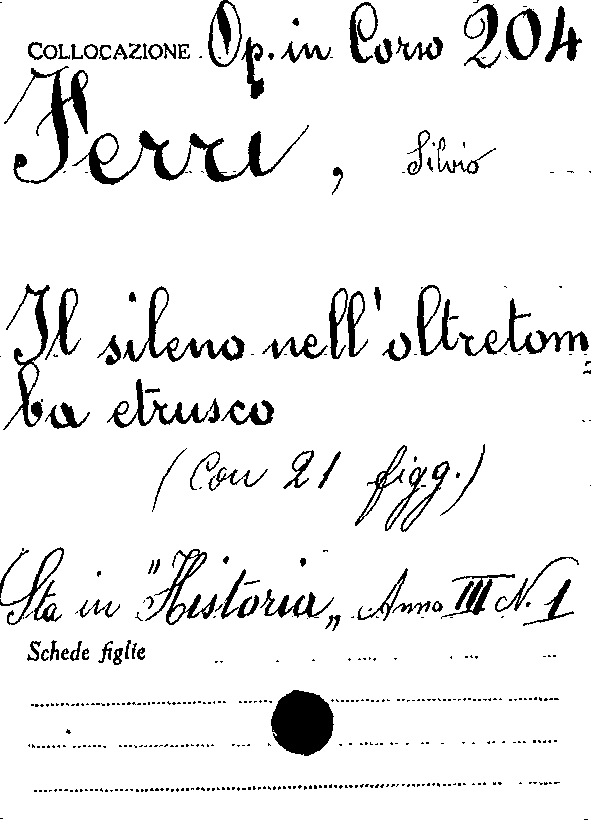 COLLOCAZIONE Op. in Corso 204
Ferri, Silvio
Il sileno nell'oltretom=
ba etrusco
(Con 21 figg.)
Sta in "Historia„ Anno III N. 1
Schede figlie